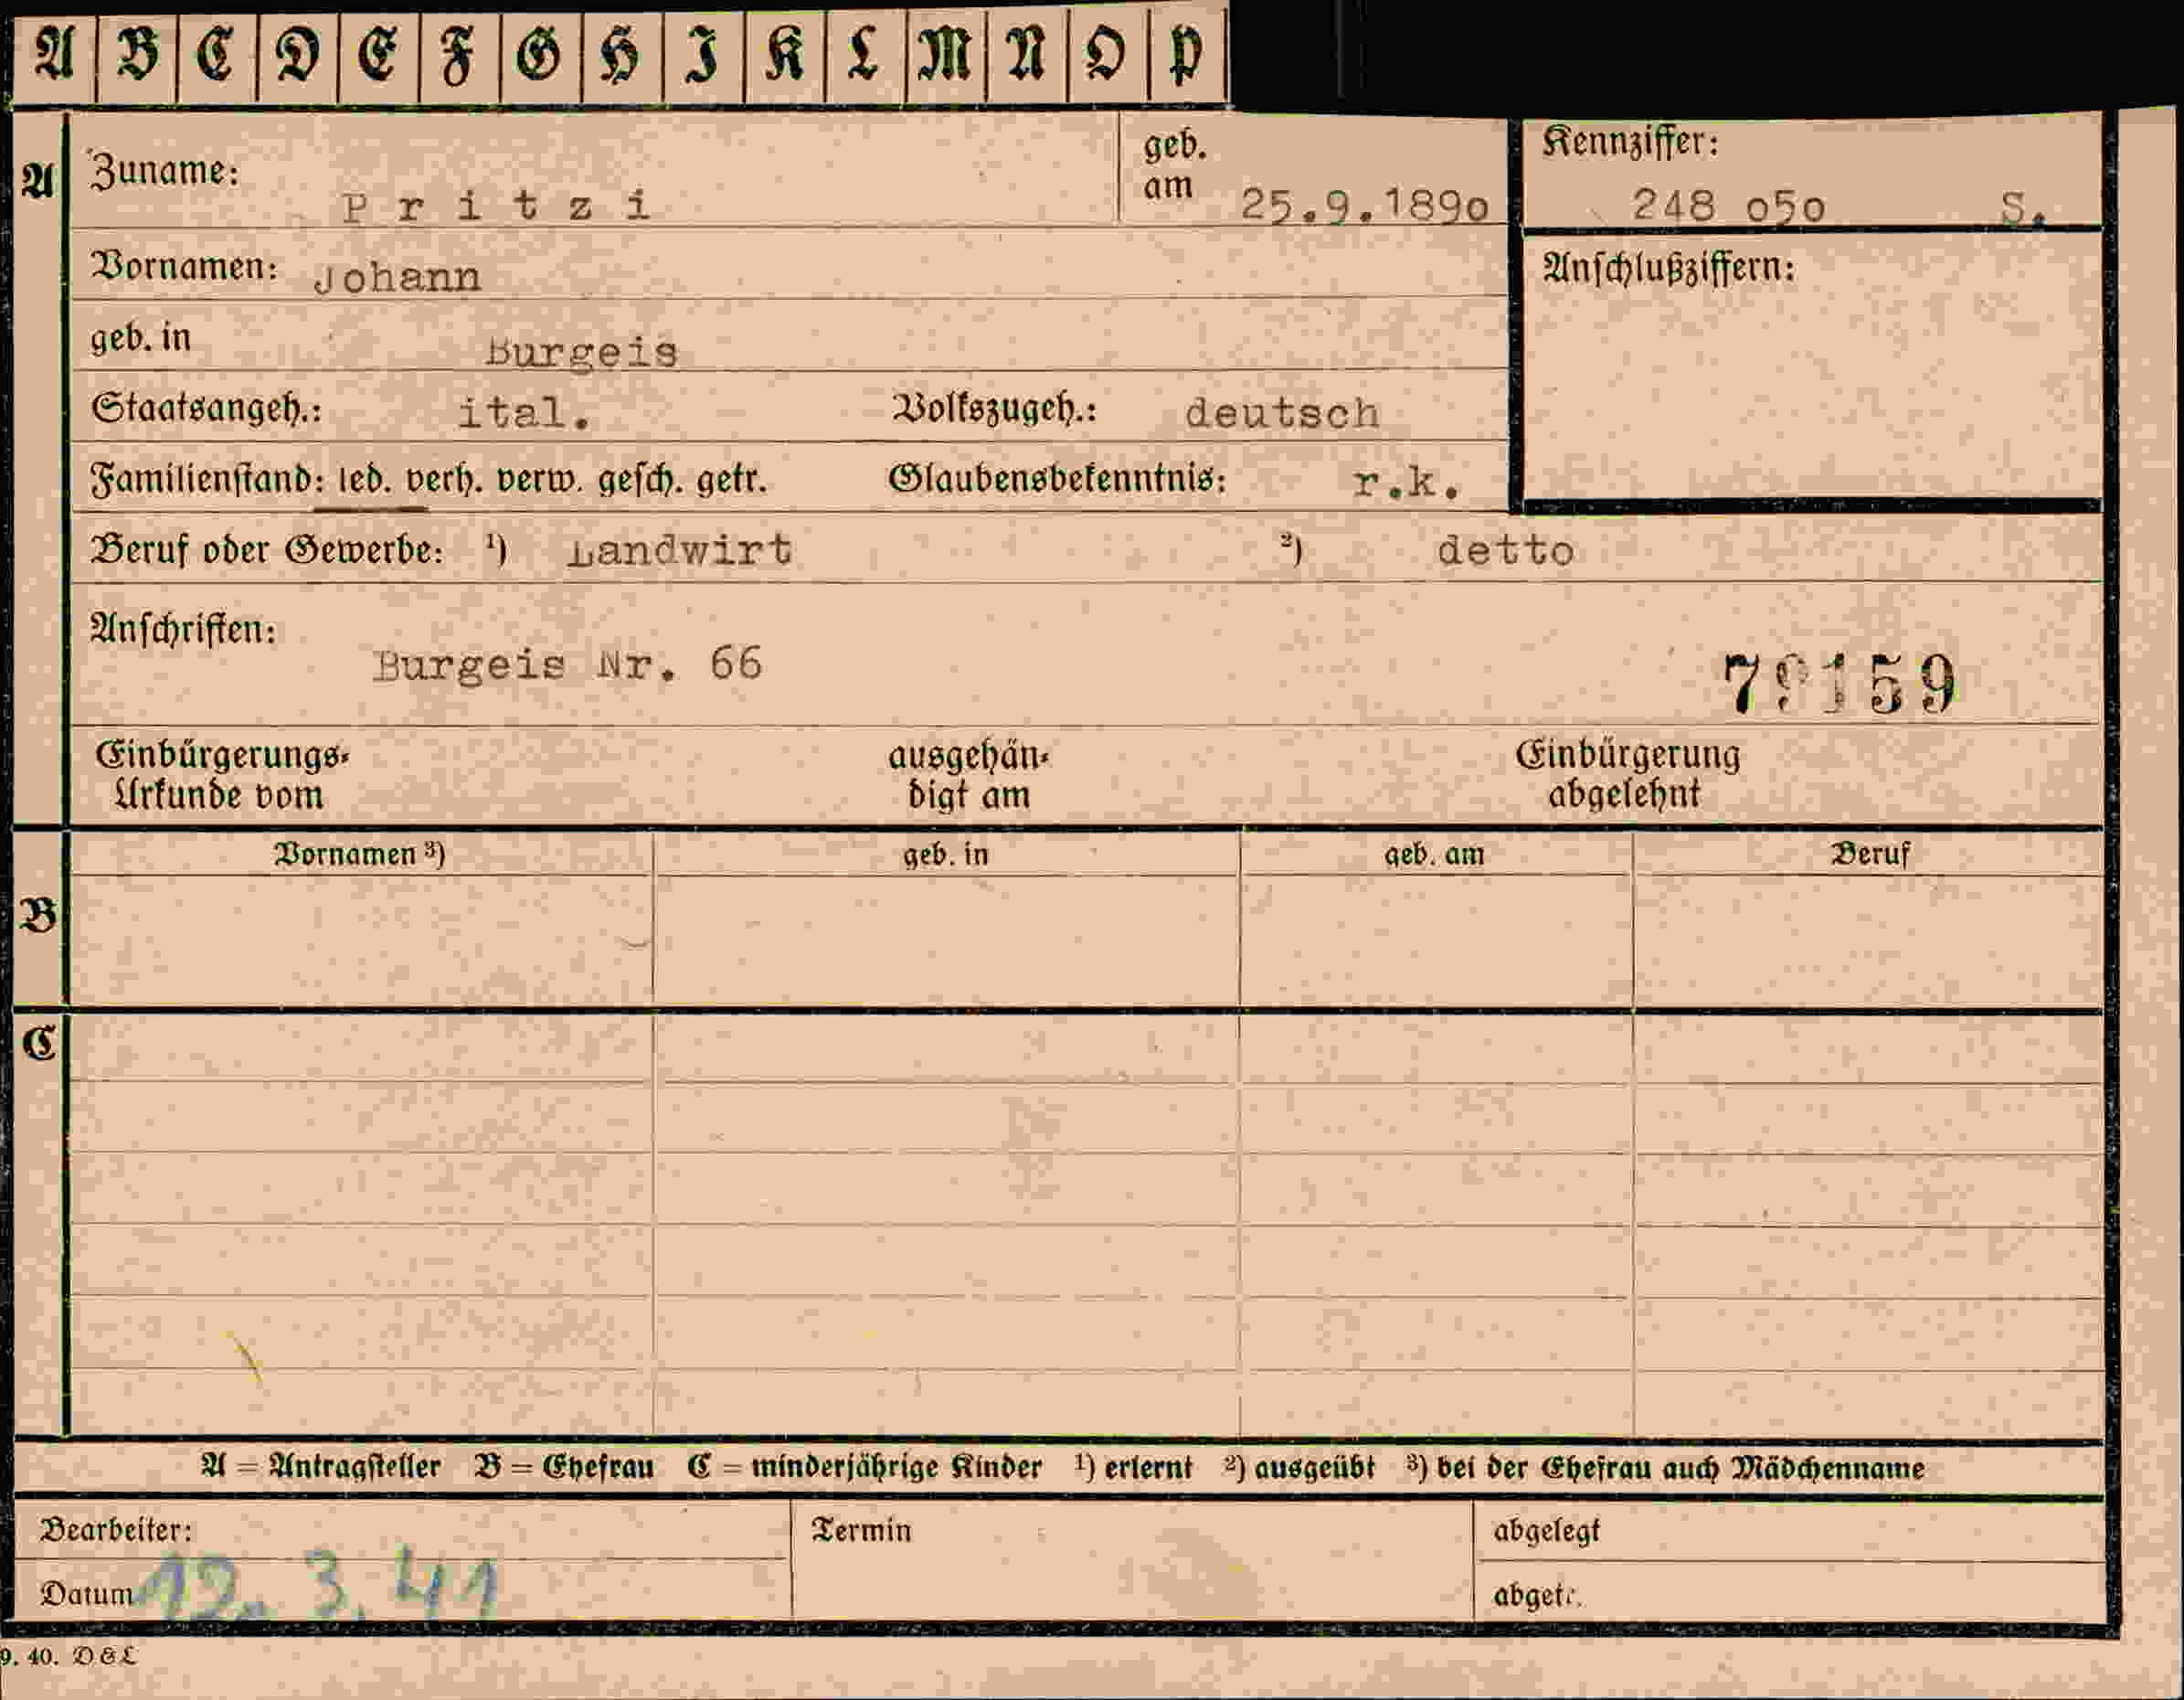 A B C D E F G H I K L M N O P
A Zuname: Pritzi geb. am 25.9.1890 Kennziffer: 248 050 S.
Vornamen: Johann Anschlußziffern:
geb. in Burgeis
Staatsangeh.: ital. Volkszugeh.: deutsch
Familienstand: led. verh. verw. gesch. getr. Glaubensbekenntnis: r.k.
Beruf oder Gewerbe: ¹) Landwirt ²) detto
Anschriften: Burgeis Nr. 66 79159
Einbürgerungs- ausgehän- Einbürgerung
Urkunde vom digt am abgelehnt
Vornamen ³) geb. in geb. am Beruf
B
C
A = Antragsteller B = Ehefrau C = minderjährige Kinder ¹) erlernt ²) ausgeübt ³) bei der Ehefrau auch Mädchenname
Bearbeiter: Termin abgelegt
Datum 12. 3. 41 abgetr.
9. 40. D & L